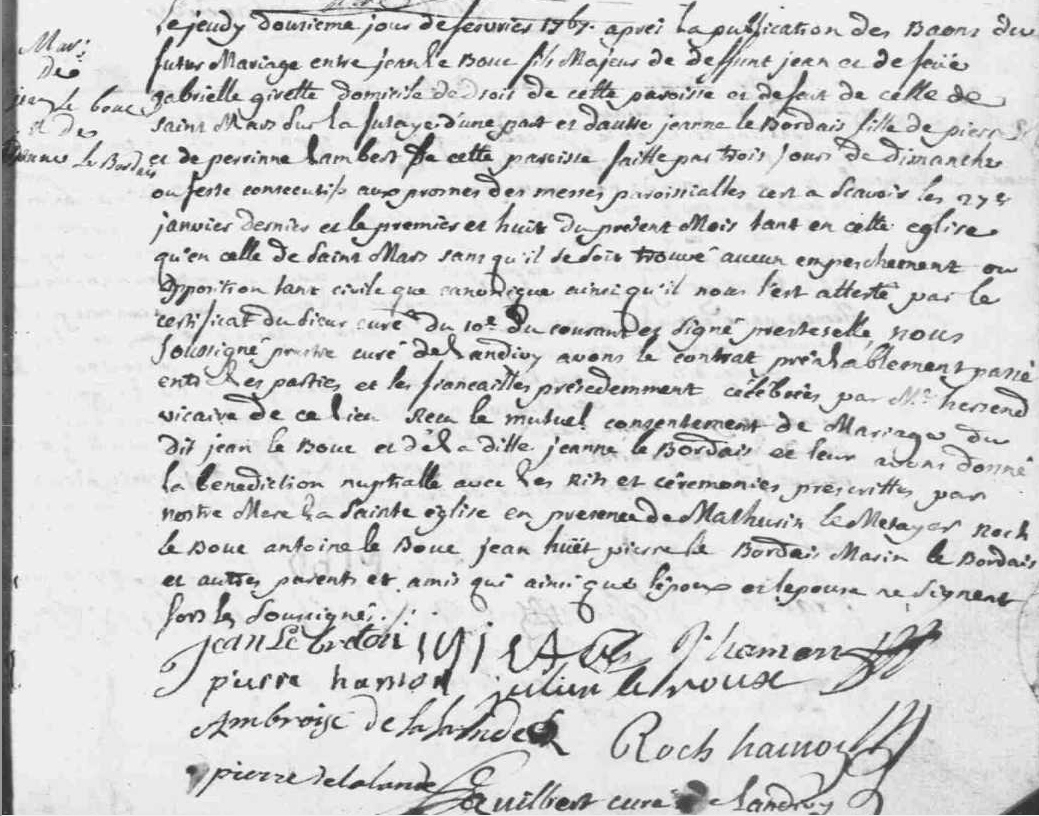 Le jeudy dousieme jour de fevrier 1767. apres la publication des Bans du
Mar:
futur Mariage entre jean le Bouc fils Majeur de deffunt jean et de feüe
De
gabrielle givette domicile de droit de cette paroisse et de fait de celle de
jean le bouc
Saint Mars Sur la futaye d'une part et d'autre jeanne le Bordais fille de pierre
et de
et de perrinne Lambert de cette paroisse faitte par trois jours de dimanche
jeanne Le Bordais
ou feste consecutifs aux prosnes des messes paroissialles cest a Scavoir les 27e
janvier dernier et le premier et huit du présent Mois tant en cette eglise
qu'en celle de Saint Mars sans qu'il se soit trouvé aucun empeschement ou
opposition tant civile que canonique ainsi qu'il nous l'est attesté par le
certificat du Sieur curé du 10e du courant et signé nous
Soussigné prestre curé de Landivy avons le contrat préalablement passé
entre les parties et les fiancailles précedemment célébrées par Mr.
vicaire de ce lieu Recu le mutuel consentement de Mariage du
dit jean le Bouc et de La ditte jeanne le Bordais et leur avons donné
la benediction nuptialle avec les Rits et cérémonies prescrittes par
nostre Mere La Sainte eglise en presence de Mathurin le Metayer Roch
le Bouc antoine le Bouc jean huët pierre le Bordais Marin le Bordais
et autres parents et amis qui ainsi que l'époux et lepouse ne signent
fors les Soussignés ./.
jean Le breton J hamon
pierre hamon julien le roux
Ambroise de la lande Roch hamon
pierre delalande Quilbert curé de Landivy